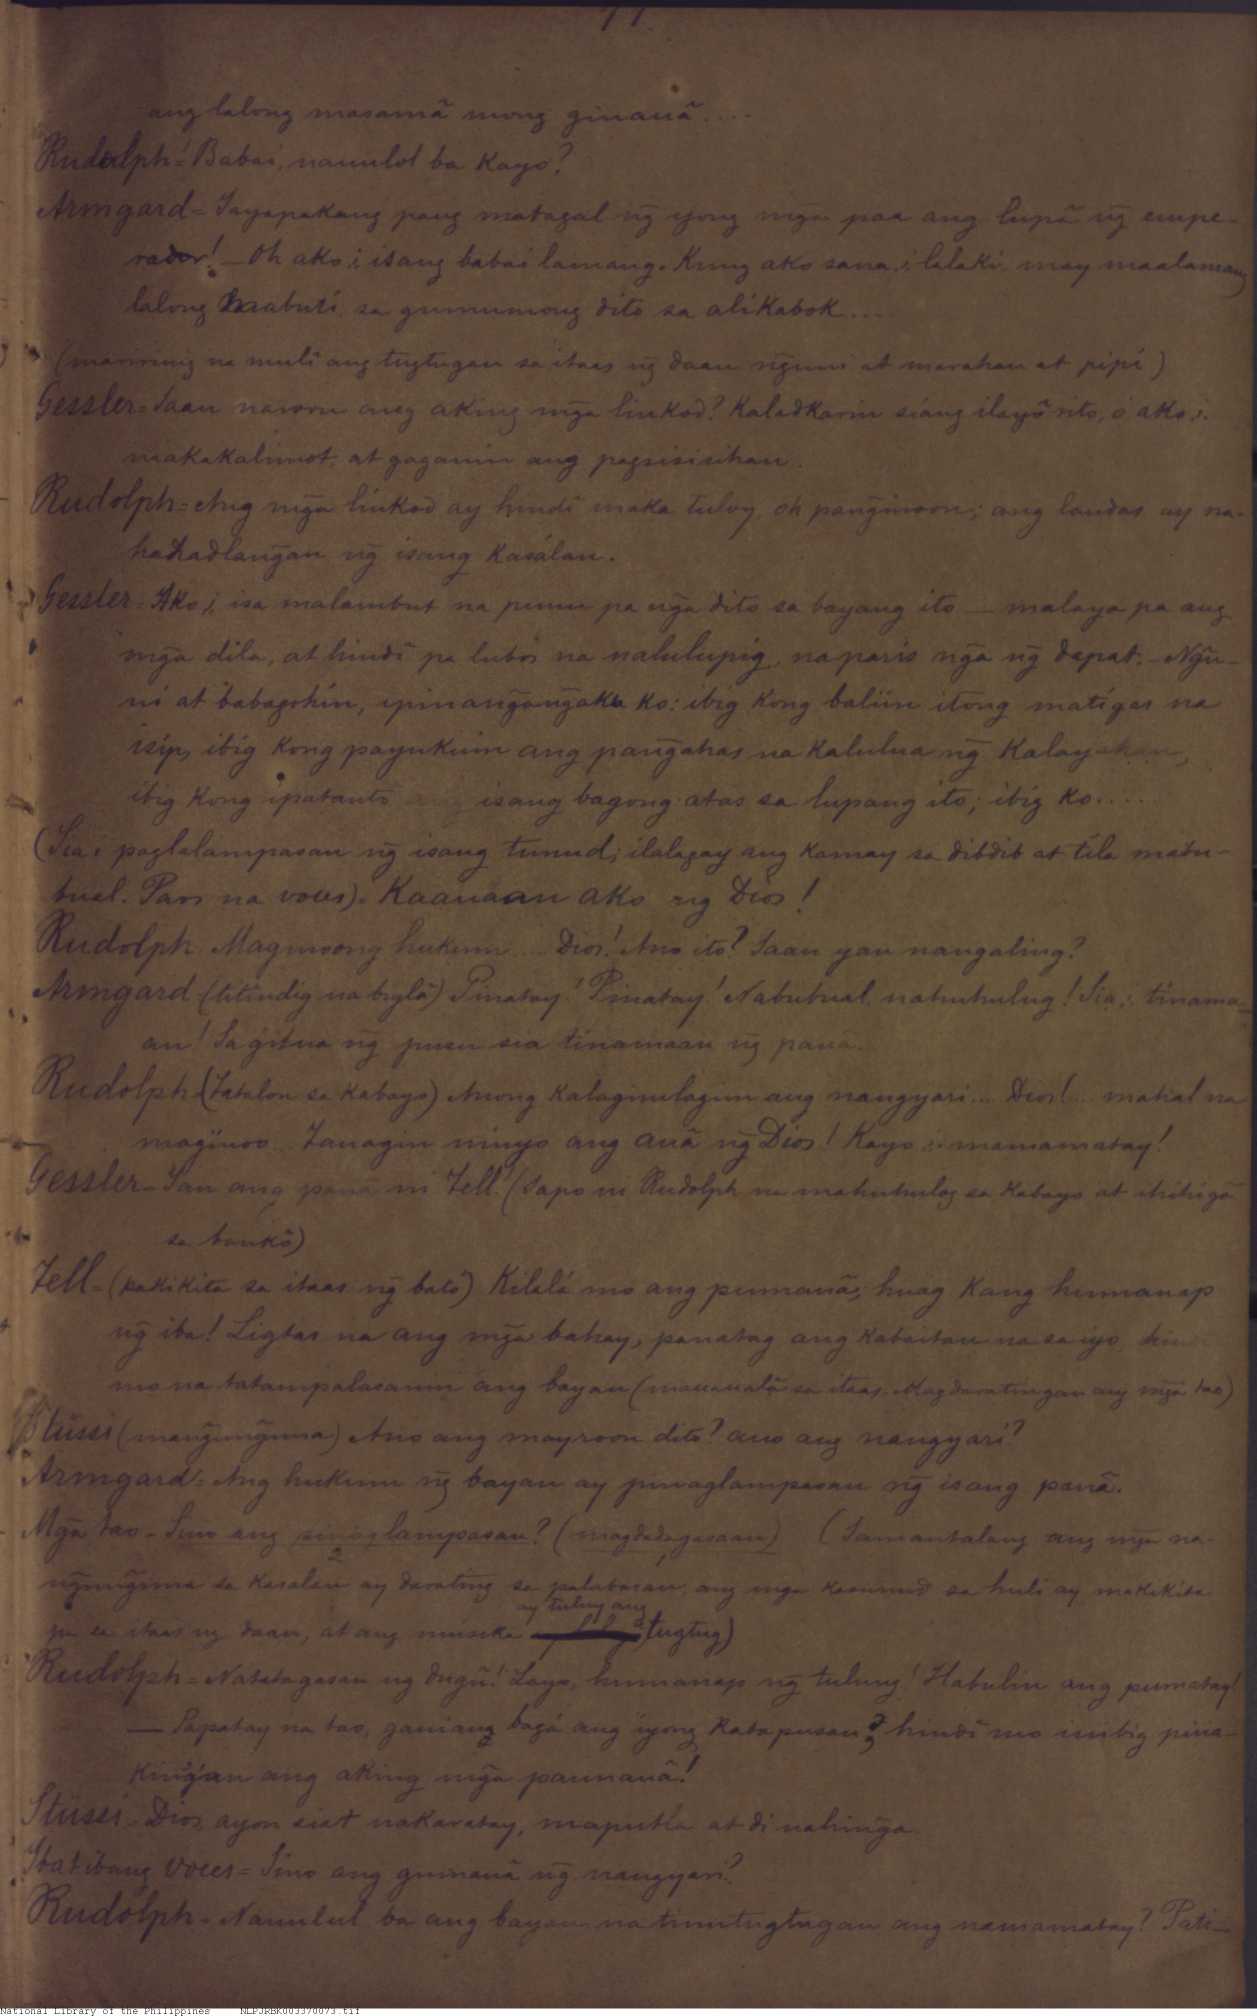 77.
ang lalong masamã mong ginauã....
Rudolph = Babai, nauulol ba kayo?
Armgard = Tayapakang pang matagal ng̃ iyong mg̃a paa ang lupã ng̃ empe-
rador! — Oh ako, i, isang babai lamang. Kung ako sana, i, lalaki, may maalamang
lalong mabuti sa gumumong dito sa alikabok....
(maririnig na muli ang tugtugan sa itaas ng̃ daan ng̃uni at marahan at pipi)
Gessler = Saan naroon ang aking mg̃a linkod? Kaladkarin siáng ilayõ rito, ó ako, i,
makakalimot, at gagawin ang pagsisisihan.
Rudolph = Ang mg̃a linkod ay hindĩ maka tuloy, oh pang̃inoon; ang landas ay na-
hahadlang̃an ng̃ isang kasálan.
Gessler = Ako, i, isa malambut na punu pa ng̃a dito sa bayang ito — malaya pa ang
mg̃a dila, at hindĩ pa lubos na nalulupig, na paris ng̃a ng̃ dapat. — Ng̃u-
ni at babagohin, ipinang̃ang̃ako ko: ibig kong baliin itong matigas na
isip, ibig kong payukuin ang pang̃ahas na kalulua ng̃ Kalayahan,
ibig kong ipatanto ang isang bagong atas sa lupang ito; ibig ko.....
(Sia, i, paglalampasan ng̃ isang tunud; ilalagay ang kamay sa dibdib at tila mabu-
bual. Paos na voces). Kaauaan ako ng Dios!
Rudolph Maginoong hukum.... Dios! Ano ito? Saan yan nangaling?
Armgard (titindig na biglã) Pinatay! Pinatay! Nabubual, nahuhulug! Sia, i, tinama-
an! Sa gitna ng̃ pusu sia tinamaan ng̃ panã.
Rudolph (Tatalon sa kabayo) Anong kalaginlagim ang nangyari.... Dios!... mahal na
maginoo... Tauagin ninyo ang auã ng̃ Dios! Kayo, i, mamamatay!
Gessler — Yan ang panã ni Tell! (Sapo ni Rudolph na mahuhulog sa kabayo at ihihigã
sa bankõ)
Tell = (pakikita sa itaas ng̃ bató) Kilalá mo ang pumanã, huag kang humanap
ng̃ iba! Ligtas na ang mg̃a bahay, panatag ang kabaitan na sa iyo, hin
mo na tatampalasanin ang bayan (mauaualã sa itaas. Magdaratingan ang mg̃a tao)
Stüssi (mang̃ung̃una) Ano ang mayroon dito? ano ang nangyari?
Armgard = Ang hukum ng̃ bayan ay pinaglampasan ng̃ isang panã.
Mg̃a tao — Sino ang pinaglampasan? (magdadagasaan) (Samantalang ang mg̃a na-
ng̃ung̃una sa kasalan ay darating sa palabasan, ang mga kasunud sa huli ay makikita
ay tuluy ang
pa sa itaas ng daan, at ang musika tugtug)
Rudolph = Natatagasan ng dugũ! Layo, humanap ng̃ tulung! Habulin ang pumatay!
— Papatay na tao, ganiang bagá ang iyong katapusan? hindĩ mo inibig pina-
king̃án ang aking mg̃a paunauã!
Stüssi = Dios, ayon siat nakaratay, maputla at di nahing̃a
Ibat ibang voces = Sino ang gumauã ng̃ nangyari?
Rudolph = Nauulul ba ang bayan na tinutugtugan ang namamatay? Pati—
National Library of the Philippines NLPJRBK003370073.tif